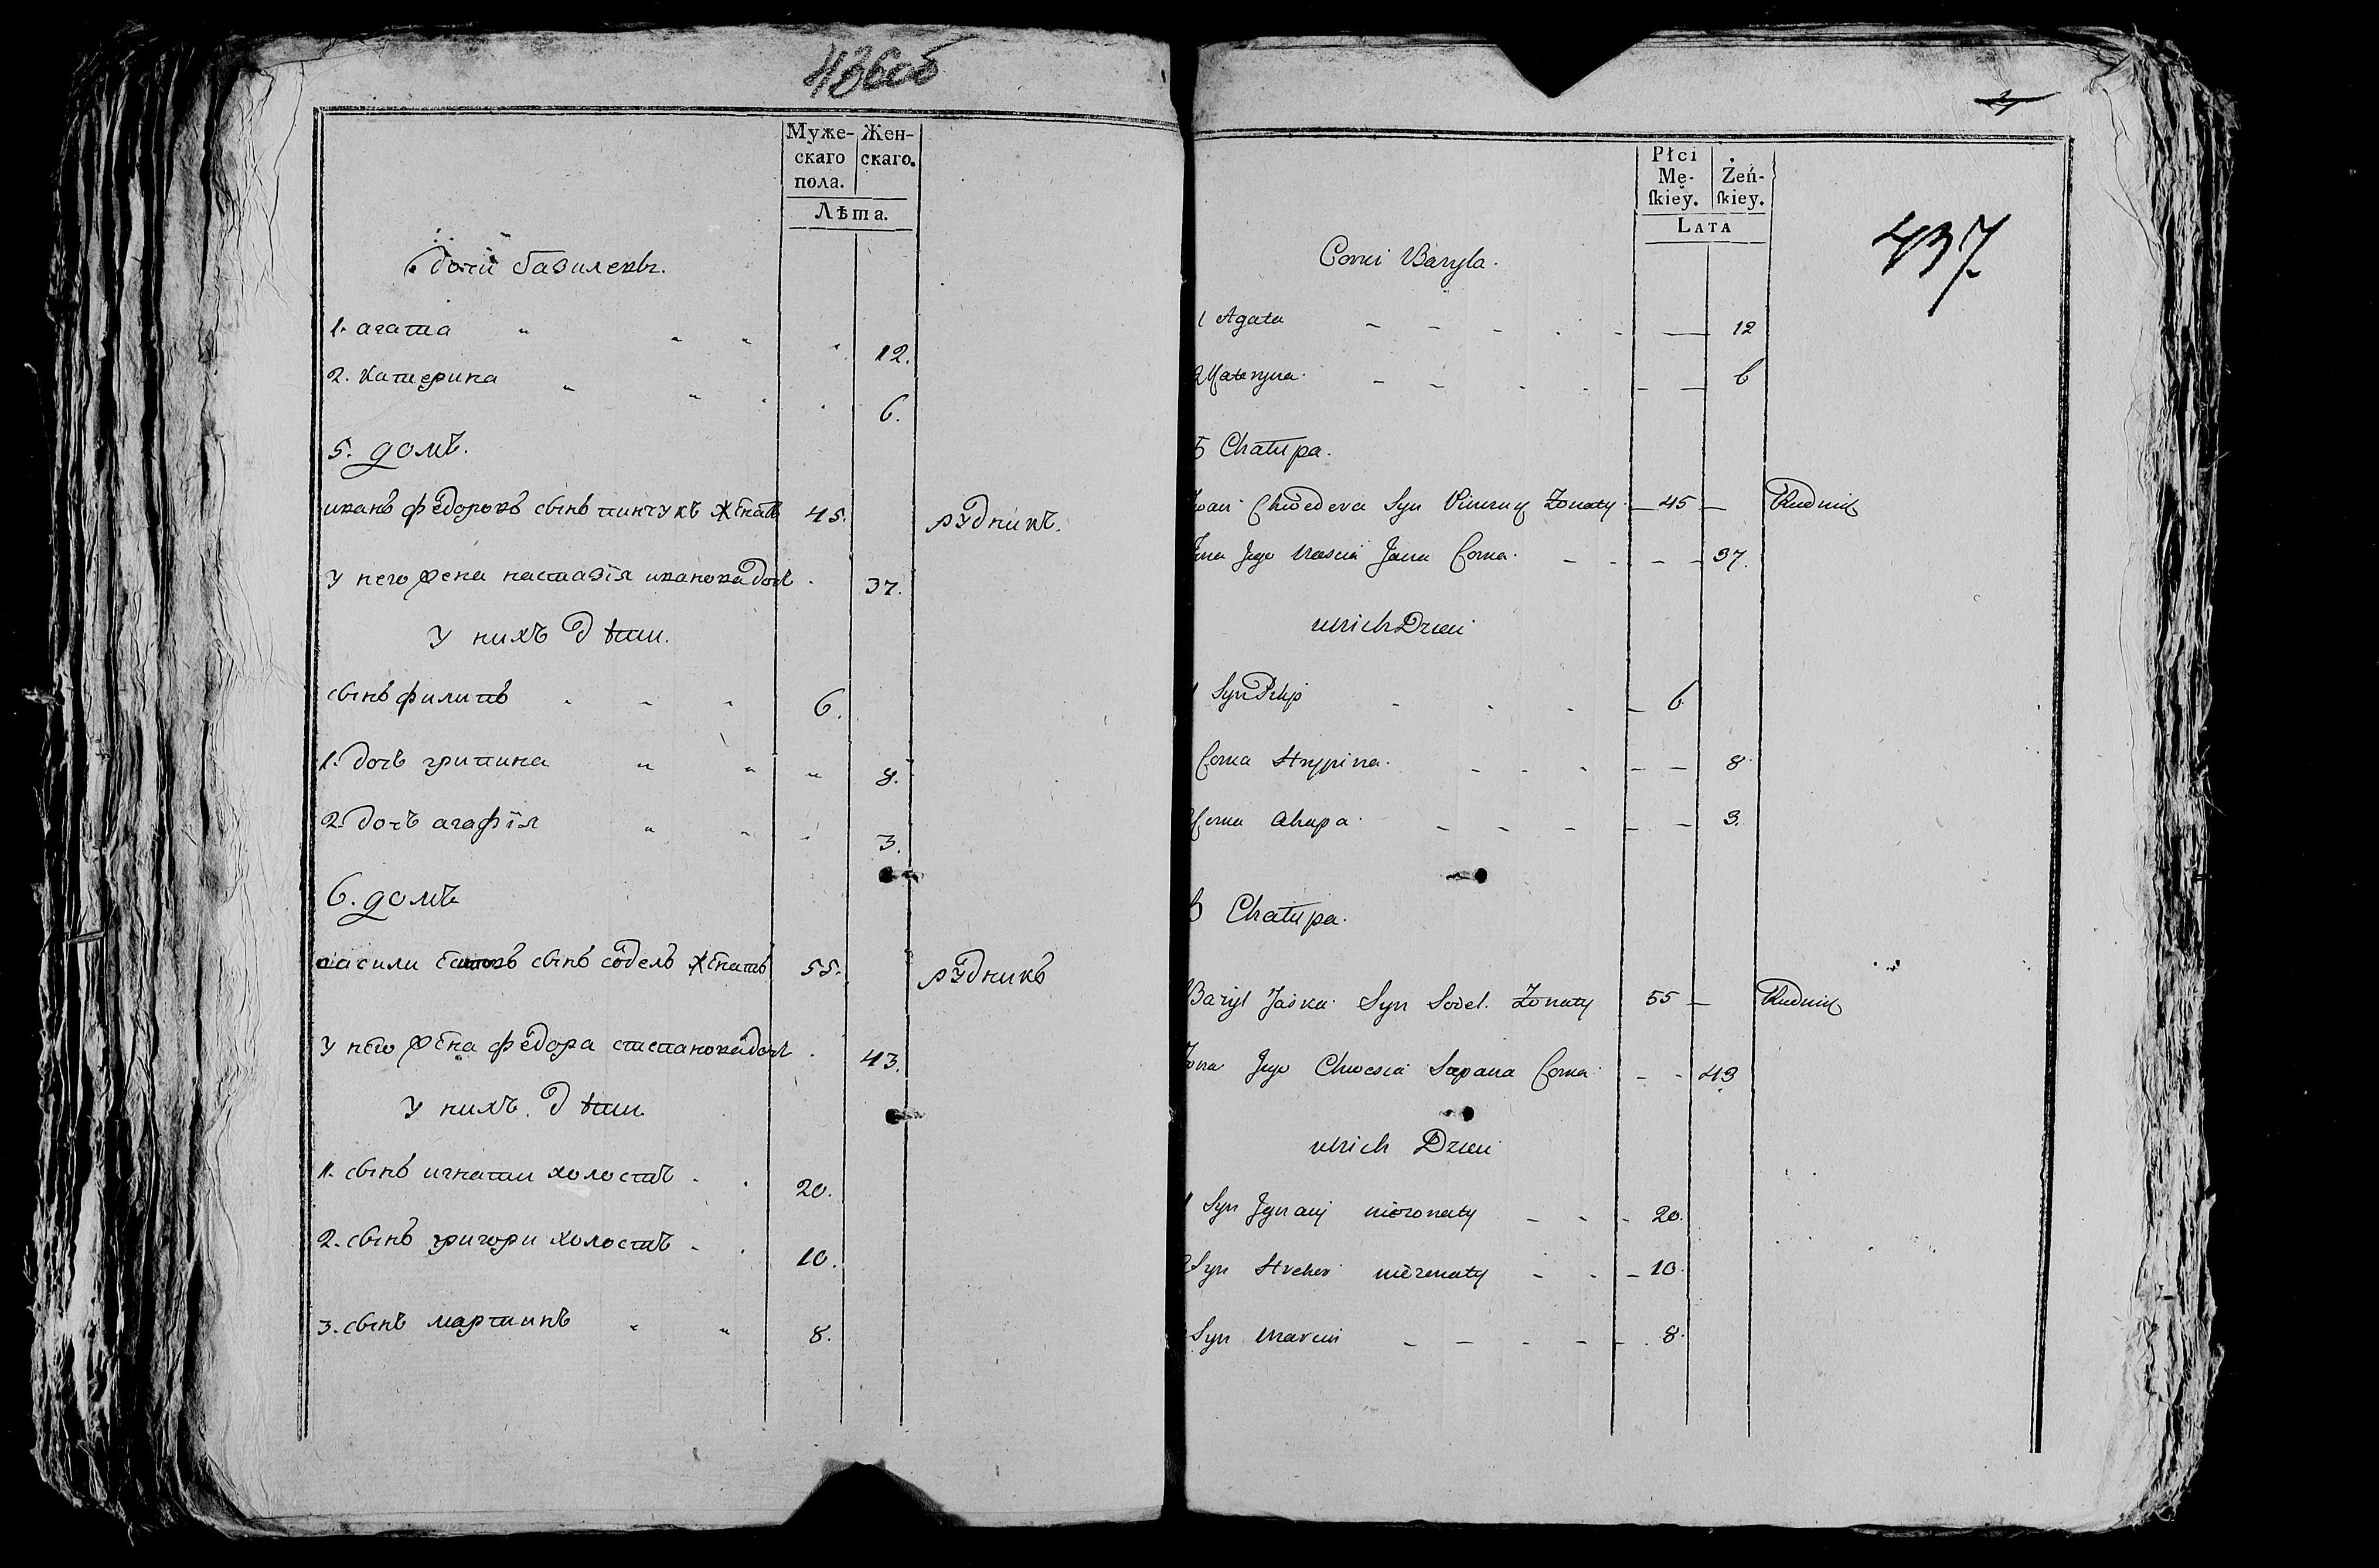 436об
Муже-
скаго
пола.
Жен-
скаго.
Лѣта.
дочки базилевы.
1. агата 12.
2. катерина 6.
5. домъ.
иванъ федоровъ сынъ пинчукъ женатъ 45. рудникъ.
у него жена настазія иванова дочь 37.
у нихъ дѣти.
сынъ филипъ 6.
1. дочь грипина 8.
2. дочь агафія 3.
6. домъ
васили сынъ содель женатъ 55. рудникъ
у него жена федора степанова дочь 43.
у нихъ дѣти
1. сынъ игнати холостъ 20.
2. сынъ григори холостъ 10.
3. сынъ мартинъ 8.
437
Płci
Mę-
ſkiey.
Żeń-
ſkiey.
LATA
Corki Baryla.
1 Agata 12
2 Kateryna 6
5 Chałupa.
Iwan Chwedora Syn Pinczuk Zonaty 45 Rudnik
Zona Jego Nascia Jana Corka 37.
u nich Dzieci
1 Syn Filip 6
Corka Hrypina 8
2 Corka Ahapa 3.
6 Chałupa.
Bazyl Jaśka Syn Sodel. Zonaty 55 Rudnik
Zona Jego Chwesia Scepana Corka 43
u nich Dzieci
1 Syn Jgnacy niezonaty 20.
2 Syn Hrehor niezonaty 10.
Syn Marcin 8.